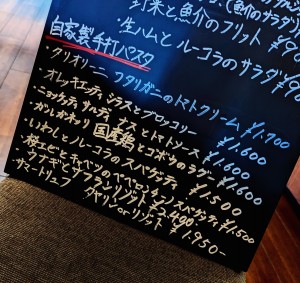 野菜と魚介のフリット ¥9
・生ハムとルーコラのサラダ ¥9
自家製手打パスタ
・フリオリーニ ワタリガニのトマトクリーム ¥1.700
オレッキエッティ シラスとブロッコリー ¥1.600
・ニョッケッティサルディ なスとトマトソース ¥1.600
・ガルガネッリ 国産鶏とゴボウのラグー ¥1.600
・いわしとルーコラのスパゲティ ¥1.500
・桜エビとキャベツのペペロンチーノスパゲティ ¥1.500
・ウナギとサフランリゾット ¥2.400-
サマートリュフ タヤリン or リゾット ¥1.950-